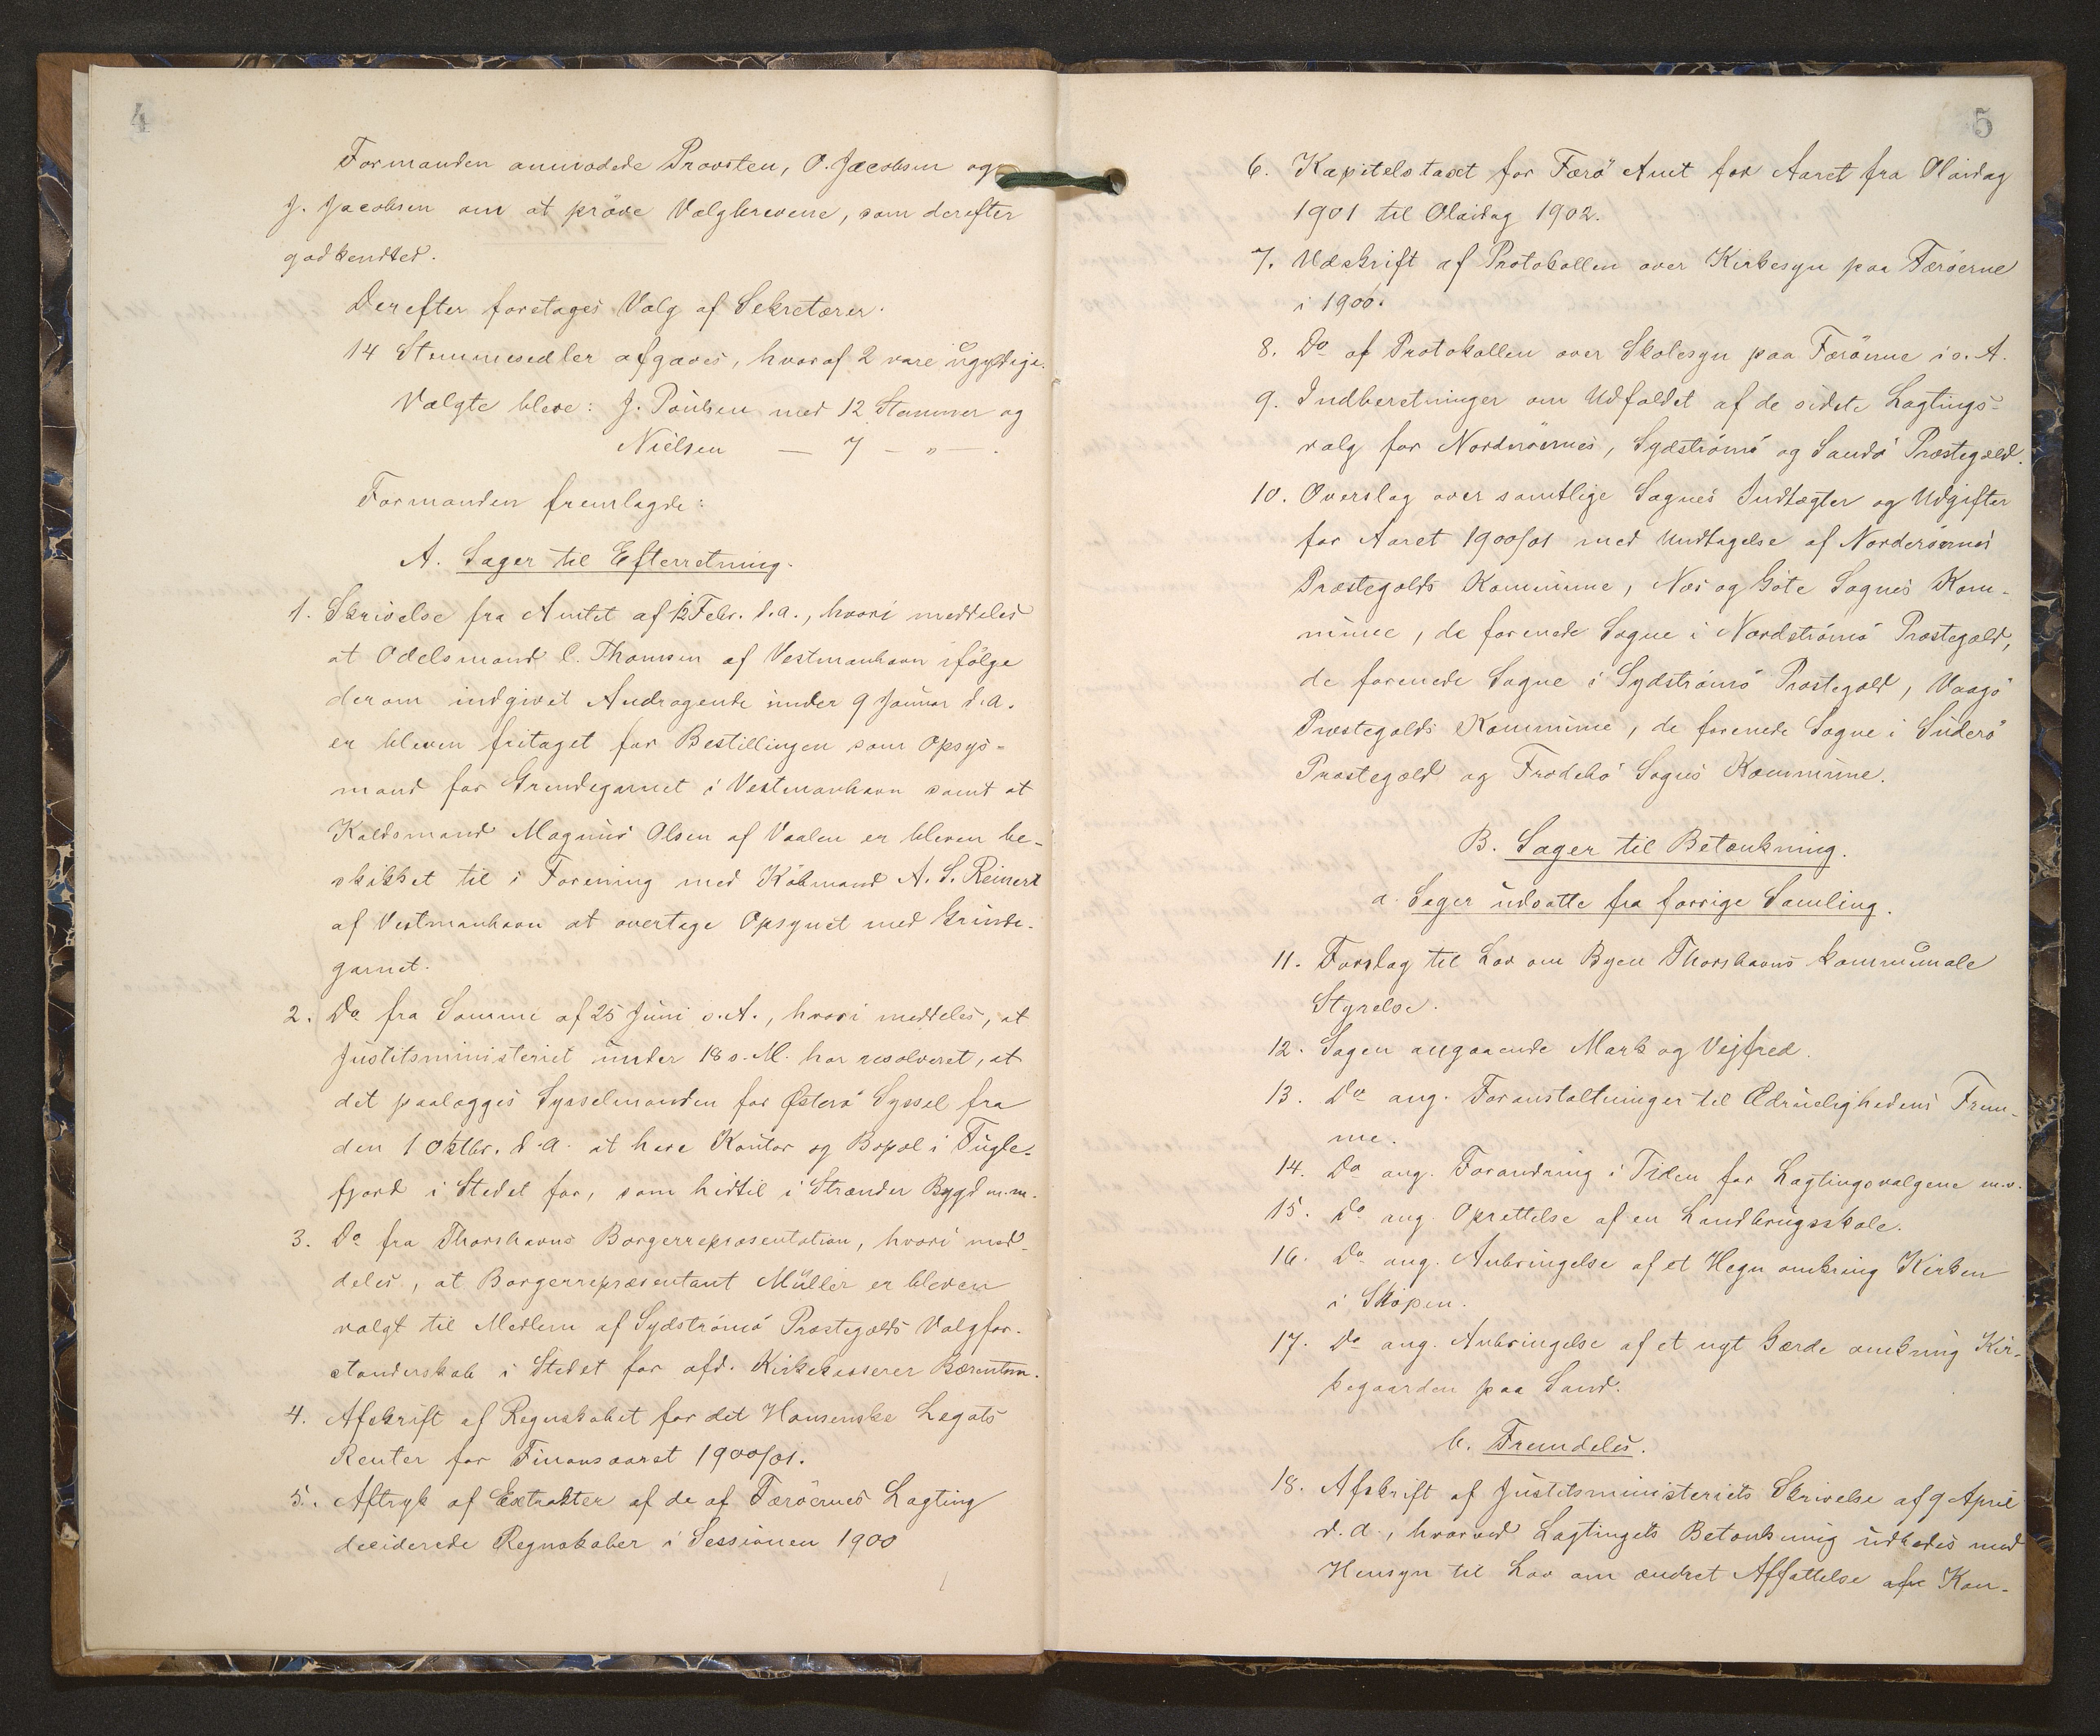 4
Formanden anmodede Provsten, O. Jacobsen og
J. Jacobsen om at pröve Valgbrevene, som derefter
godkendtes.
Derefter foretages Valg af Sekretærer.
14 Stemmesedler afgaves, hvoraf 2 vare ugyldige.
Valgte bleve: J. Poulsen med 12 Stemmer og
Nielsen — 7 — " — .
Formanden fremlagde:
A. Sager til Efterretning.
1. Skrivelse fra Amtet af 12 Febr. d.a., hvori meddeles
at Odelsmand C. Thomsen af Vestmanhavn ifölge
derom indgivet Andragende under 9 Januar d.a.
er bleven fritaget for Bestillingen som Opsyns-
mand for Grindegarnet i Vestmanhavn samt at
Koldsmand Magnus Olsen af Vaalen er bleven be-
skikket til i Forening med Köbmand A. S. Reinert
af Vestmanhavn at overtage Opsynet med Grinde-
garnet.
2. Do fra Samme af 25 Juni s.A., hvori meddeles, at
Justitsministeriet under 18 s.M. har resolveret, at
det paalægges Sysselmanden for Österö Syssel fra
den 1 Oktbr. d.a. at have Kontor og Bopæl i Fugle-
fjord i Stedet for, som hidtil i Strænder Bygd m.m.
3. Do fra Thorshavns Borgerrepræsentation, hvori med-
deles, at Borgerrepræsentant Müller er bleven
valgt til Medlem af Sydströmö Præstegælds Valgfor-
standerskab i Stedet for afd. Kirkekasserer Bærentsen.
4. Afskrift af Regnskabet for det Hansenske Legats
Renter for Finansaaret 1900/01.
5. Aftryk af Extrakter af de af Færöernes Lagting
deciderede Regnskaber i Sessionen 1900
5
6. Kapitelstaxt for Færö Amt for Aaret fra Olaidag
1901 til Olaidag 1902.
7. Udskrift af Protokollen over Kirkesyn paa Færöerne
i 1900.
8. Do af Protokollen over Skolesyn paa Færöerne i s.A.
9. Indberetninger om Udfaldet af de sidste Lagtings-
valg for Norderöernes, Sydströmö og Sandö Præstegæld.
10. Overslag over samtlige Sognes Indtægter og Udgifter
for Aaret 1900/01 med Undtagelse af Norderöernes
Præstegælds Kommune, Næs og Göte Sognes Kom-
mune, de forenede Sogne i Nordströmö Præstegæld,
de forenede Sogne i Sydströmö Præstegæld, Vaagö
Præstegælds Kommune, de forenede Sogne i Suderö
Præstegæld og Frodebö Sogns Kommune.
B. Sager til Betænkning.
a. Sager udsatte fra forrige Samling.
11. Forslag til Lov om Byen Thorshavns kommunale
Styrelse.
12. Sagen angaaende Mark og Vejfred.
13. Do ang. Foranstaltninger til Ædruelighedens Frem-
me.
14. Do ang. Forandring i Tiden for Lagtingsvalgene m.v.
15. Do ang. Oprettelse af en Landbrugsskole.
16. Do ang. Anbringelse af et Hegn omkring Kirken
i Skopen.
17. Do ang. Anbringelse af et nyt Gærde omkring Kir-
kegaarden paa Sand.
b. Fremdeles.
18. Afskrift af Justitsministeriets Skrivelse af 9 April
d.a., hvorved Lagtingets Betænkning udbedes med
Hensyn til Lov om ændret Affattelse af Kon-